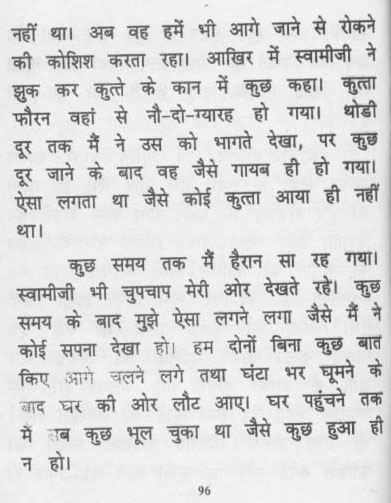 नहीं था। अब वह हमें भी आगे जाने से रोकने
की कोशिश करता रहा। आखिर में स्वामीजी ने
झुक कर कुत्ते के कान में कुछ कहा। कुत्ता
फौरन वहां से नौ-दो-ग्यारह हो गया। थोडी
दूर तक मैं ने उस को भागते देखा, पर कुछ
दूर जाने के बाद वह जैसे गायब ही हो गया।
ऐसा लगता था जैसे कोई कुत्ता आया ही नहीं
था।
कुछ समय तक मैं हैरान सा रह गया।
स्वामीजी भी चुपचाप मेरी ओर देखते रहे। कुछ
समय के बाद मुझे ऐसा लगने लगा जैसे मैं ने
कोई सपना देखा हो। हम दोनों बिना कुछ बात
किए आगे चलने लगे तथा घंटा भर घूमने के
बाद घर की ओर लौट आए। घर पहुंचने तक
मैं सब कुछ भूल चुका था जैसे कुछ हुआ ही
न हो।
96